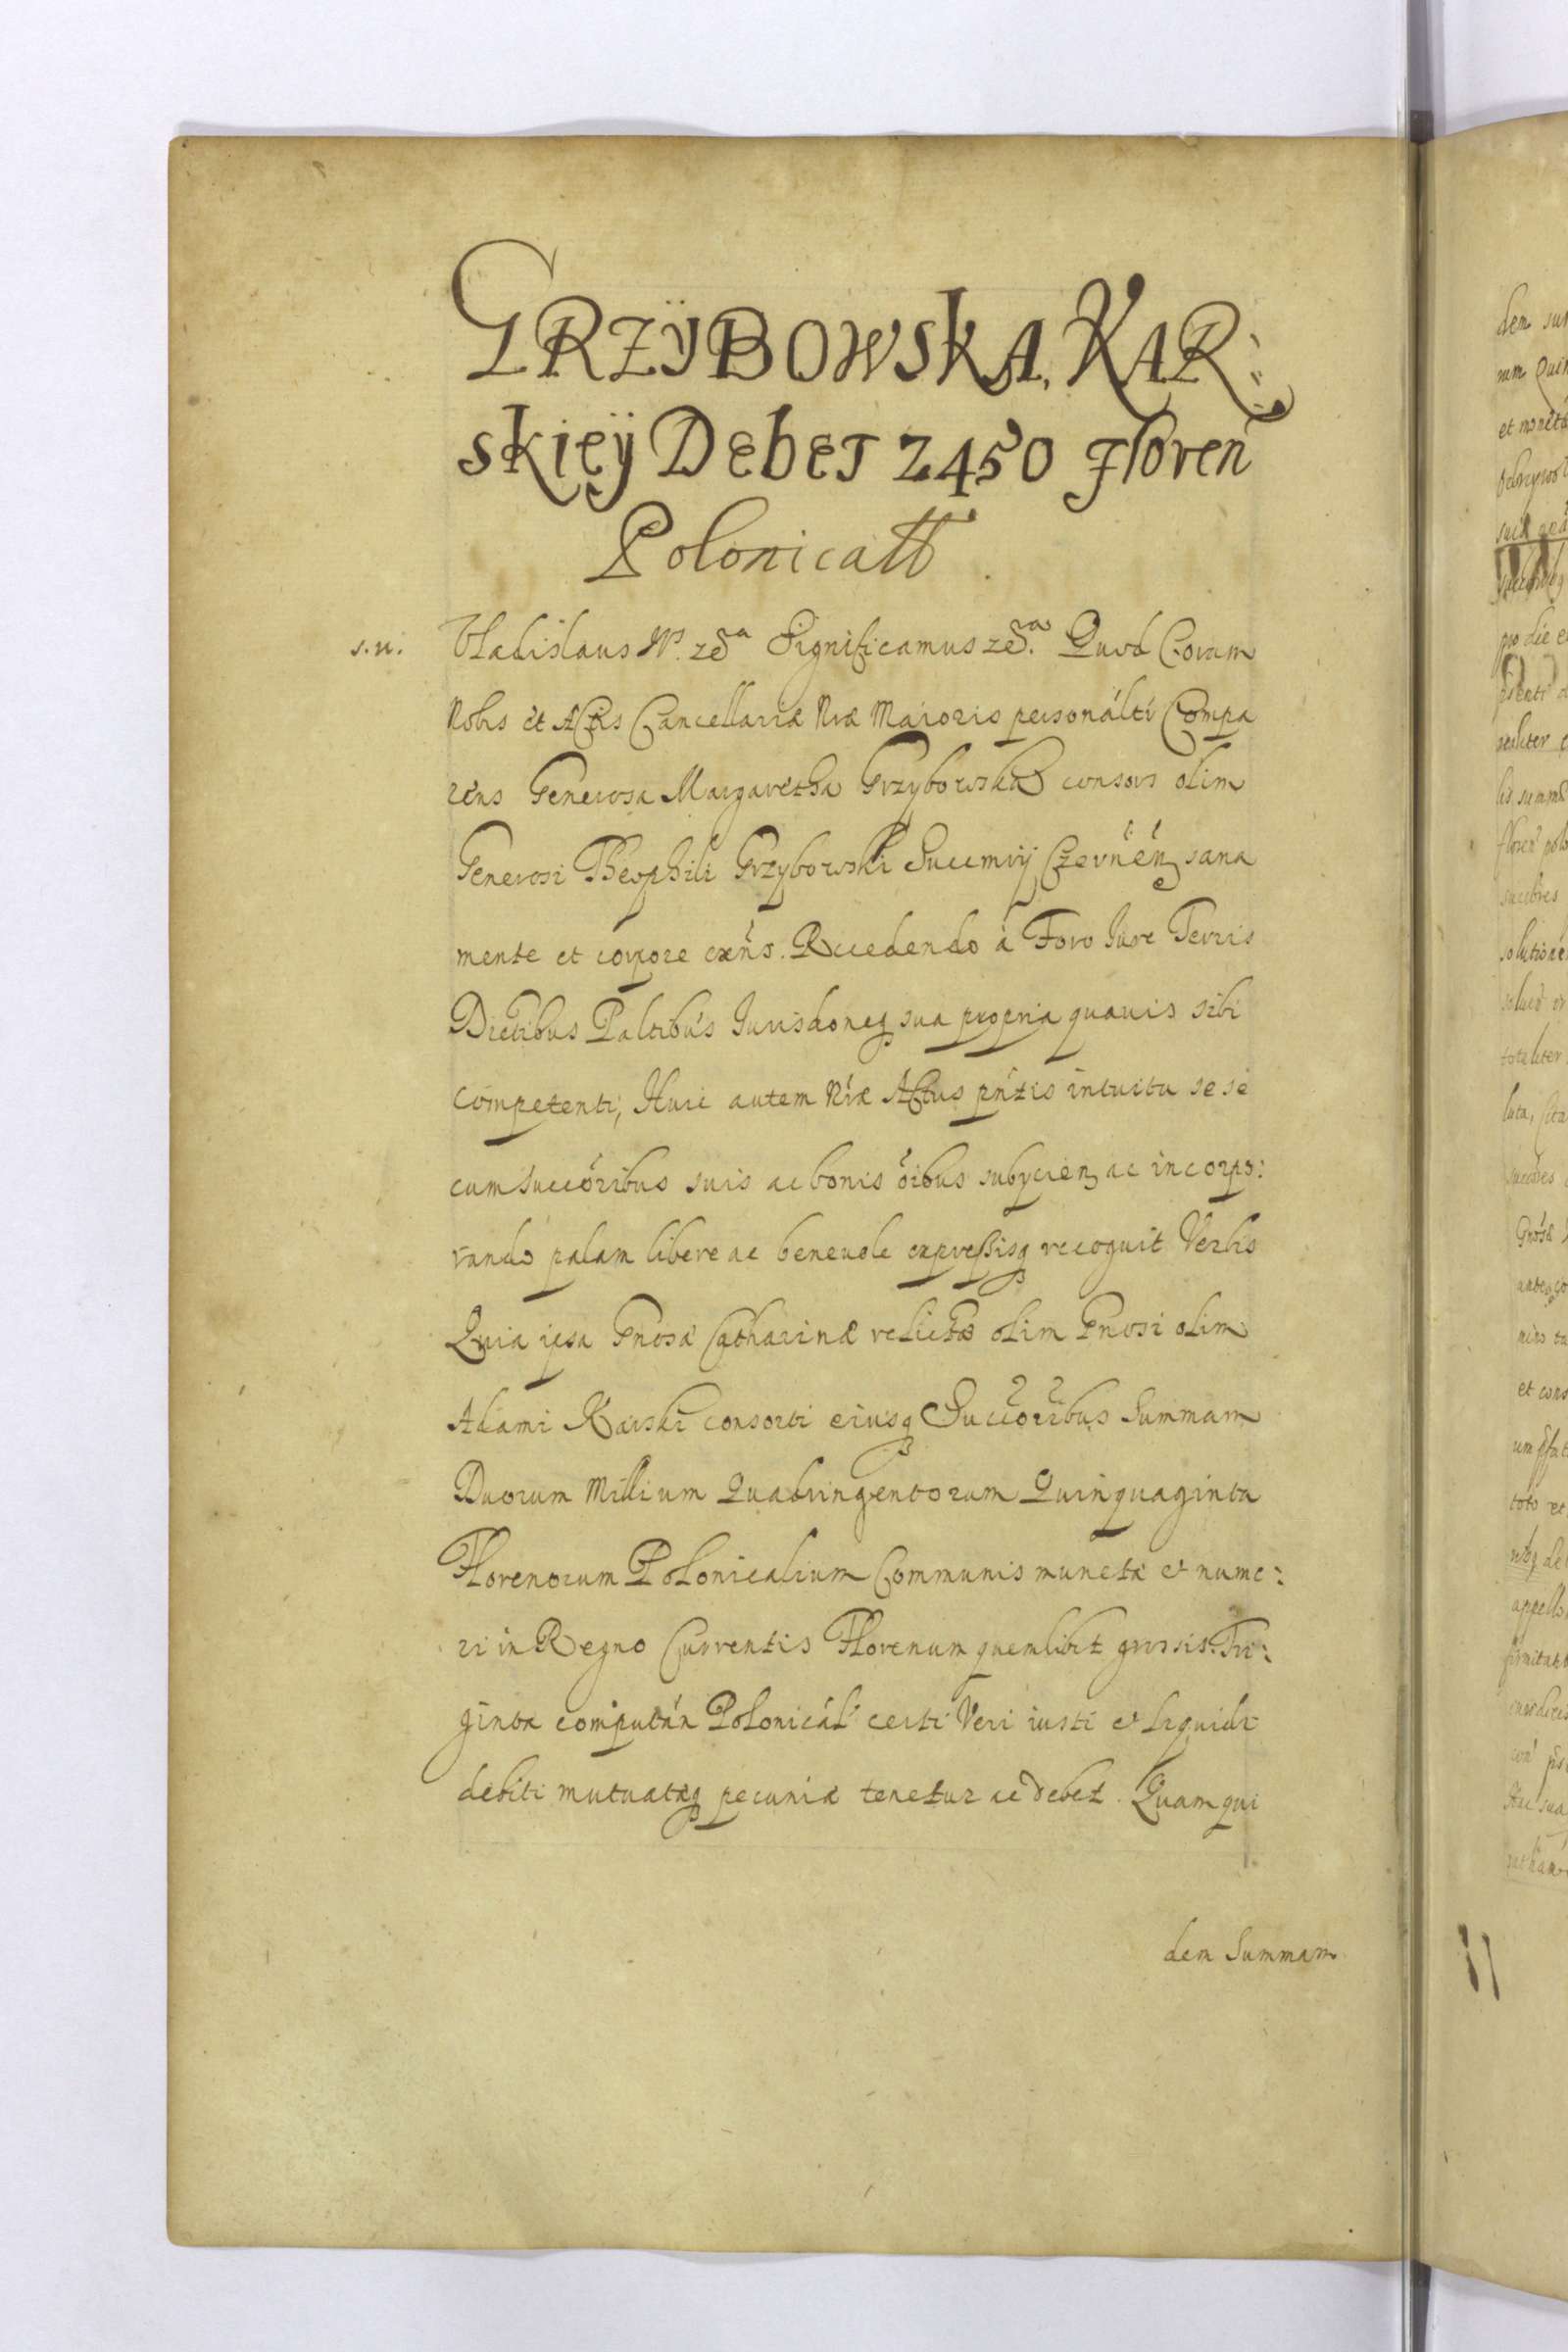 GRZÿBOWSKA, KAR:
skieÿ Debet 2450 Floren
Polonicall
s.n. Vladislaus IVs zc̃a Significamus zc̃a. Quod Coram
Nobis et Actis Cancellariæ Nræ Maioris personálti Compa
rens Generosa Margaretha Grzybowska consors olim
Generosi Theophili Grzybowski Succmrij Czernen sana
mente et corpore exns. Recedendo à Foro Iure Terris
Dictibus Paltibus Jurisdoneq sua propria quavis sibi
competenti, Huic autem Nræ Actus pntis intuitu se se
cum succoribus suis ac bonis oibus subycien ac incorpo:
rando palam libere ac benevole expressisq recognit Verbis
Quia ipsa Gnosæ Catharinæ relictæ olim Gnosi olim
Adami Karski consorti eiusq Succoribus Summam
Duorum Millium Quadringentorum Quinquaginta
Florenorum Polonicalium Communis munetæ et nume:
ri in Regno Currentis Florenum quemlibet grossis Tri:
ginta compután Polonicál certi Veri iusti et liquidi
debiti mutuatæq pecuniæ tenetur ac debet. Quam qui
dem Summam